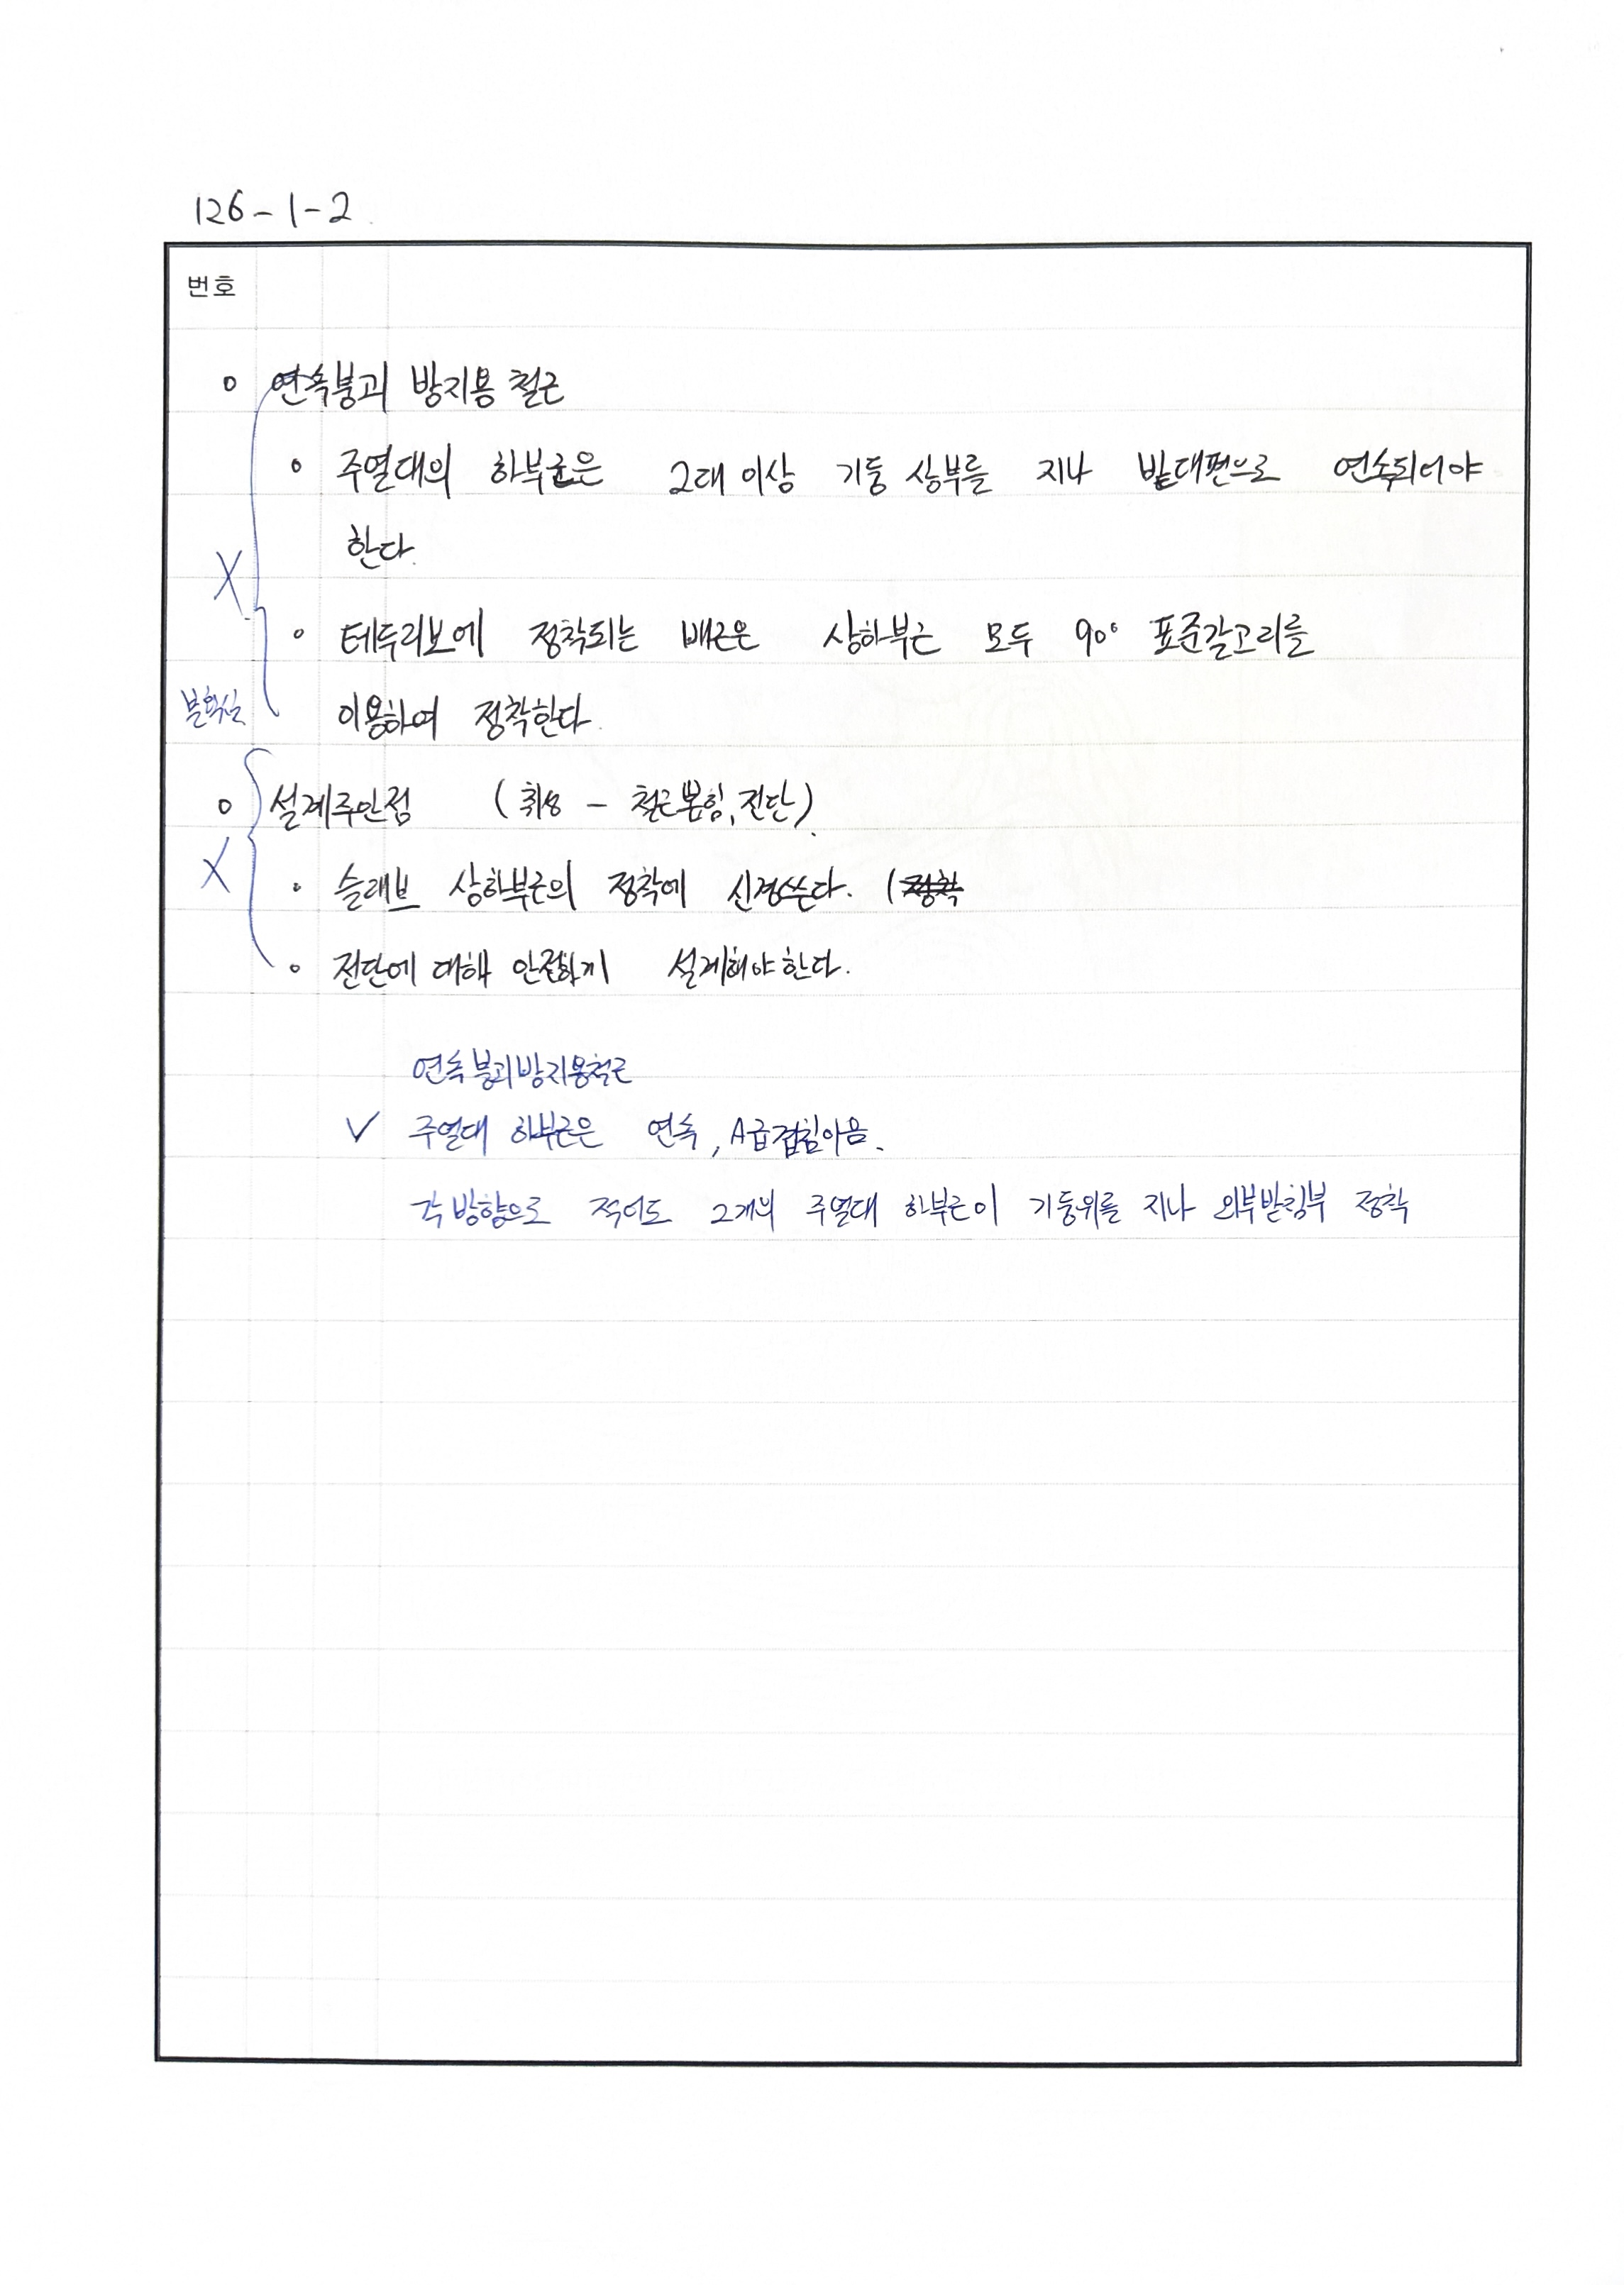 126-1-2
번호
연속붕괴 방지용 철근
주열대의 하부근은 2대 이상 기둥 상부를 지나 반대편으로 연속되어야
한다.
X
테두리보에 정착되는 배근은 상하부근 모두 90° 표준갈고리를
불확실 이용하여 정착한다.
설계주안점 ( - 철근뽑힘, 전단).
X 슬래브 상하부근의 정착에 신경쓴다. (정착
전단에 대해 안전하게 설계해야한다.
연속붕괴방지용철근
✓ 주열대 하부근은 연속, A급겹침이음.
각 방향으로 적어도 2개의 주열대 하부근이 기둥위를 지나 외부받침부 정착